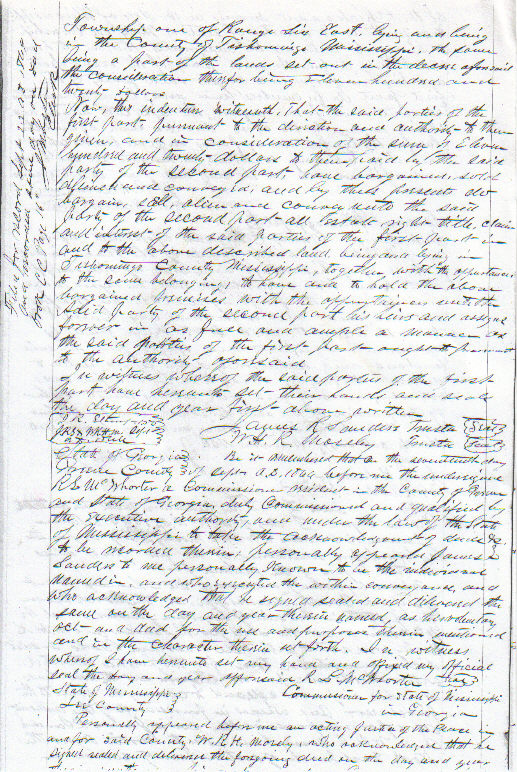 Township one of Range Six East, lying and being
in the County of Tishomingo Mississippi, the same
being a part of the lands set out in the decree aforesaid
the consideration therefor being Eleven hundred and
twenty dollars
Now, this indenture witnesseth, That the said parties of the
first part, pursuant to the direction and authority to them
given, and in consideration of the sum of Eleven
hundred and twenty dollars to them paid by the said
party of the second part have bargained, sold
aliened and conveyed, and by these presents do
bargain, sell alien and convey unto the said
party of the second part all Estate right title, claim
and interest of the said parties of the first part in
and to the above described land lying and being in
Tishomingo County Mississippi, together with the appurtenances
to the same belonging, to have and to hold the above
bargained premises with the appurtenances unto the
said party of the second part his heirs and assigns
forever in as full and ample a manner as
the said parties of the first part ought to
to the authority aforesaid
In witness whereof the said parties of the first
part have hereunto set their hands and seals
the day and year first above written
James R Sanders Trustee Seal
W. H. R. Mosely Trustee Seal
State of Georgia
Greene County Be it remembered that on the seventeenth day
of Sept A.D. before me the undersigned
R. L. McWhorter a Commissioner resident in the County of Greene
and State of Georgia, duly Commissioned and qualified by
the Executive authority and under the law of the State
of Mississippi to take the acknowledgment of deeds &c
to be recorded therein, personally appeared James R
Sanders to me personally known to be the individual
named in, and who executed the within conveyance, and
who acknowledged that he signed sealed and delivered the
same on the day and year therein named, as his voluntary
act and deed for the use and purposes therein mentioned
and in the character therein set forth. In witness
whereof, I have hereunto set my hand and affixed my official
seal the day and year aforesaid R. L. McWhorter
Commissioner for State of Mississippi
in Georgia
State of Mississippi
County
Personally appeared before me an acting Justice of the Peace in
and for said County, W. R. H. Mosely, who acknowledged that he
signed sealed and delivered the foregoing deed on the day and year
Filed for record Sept 22
and recorded same day
Book Page
Clerk